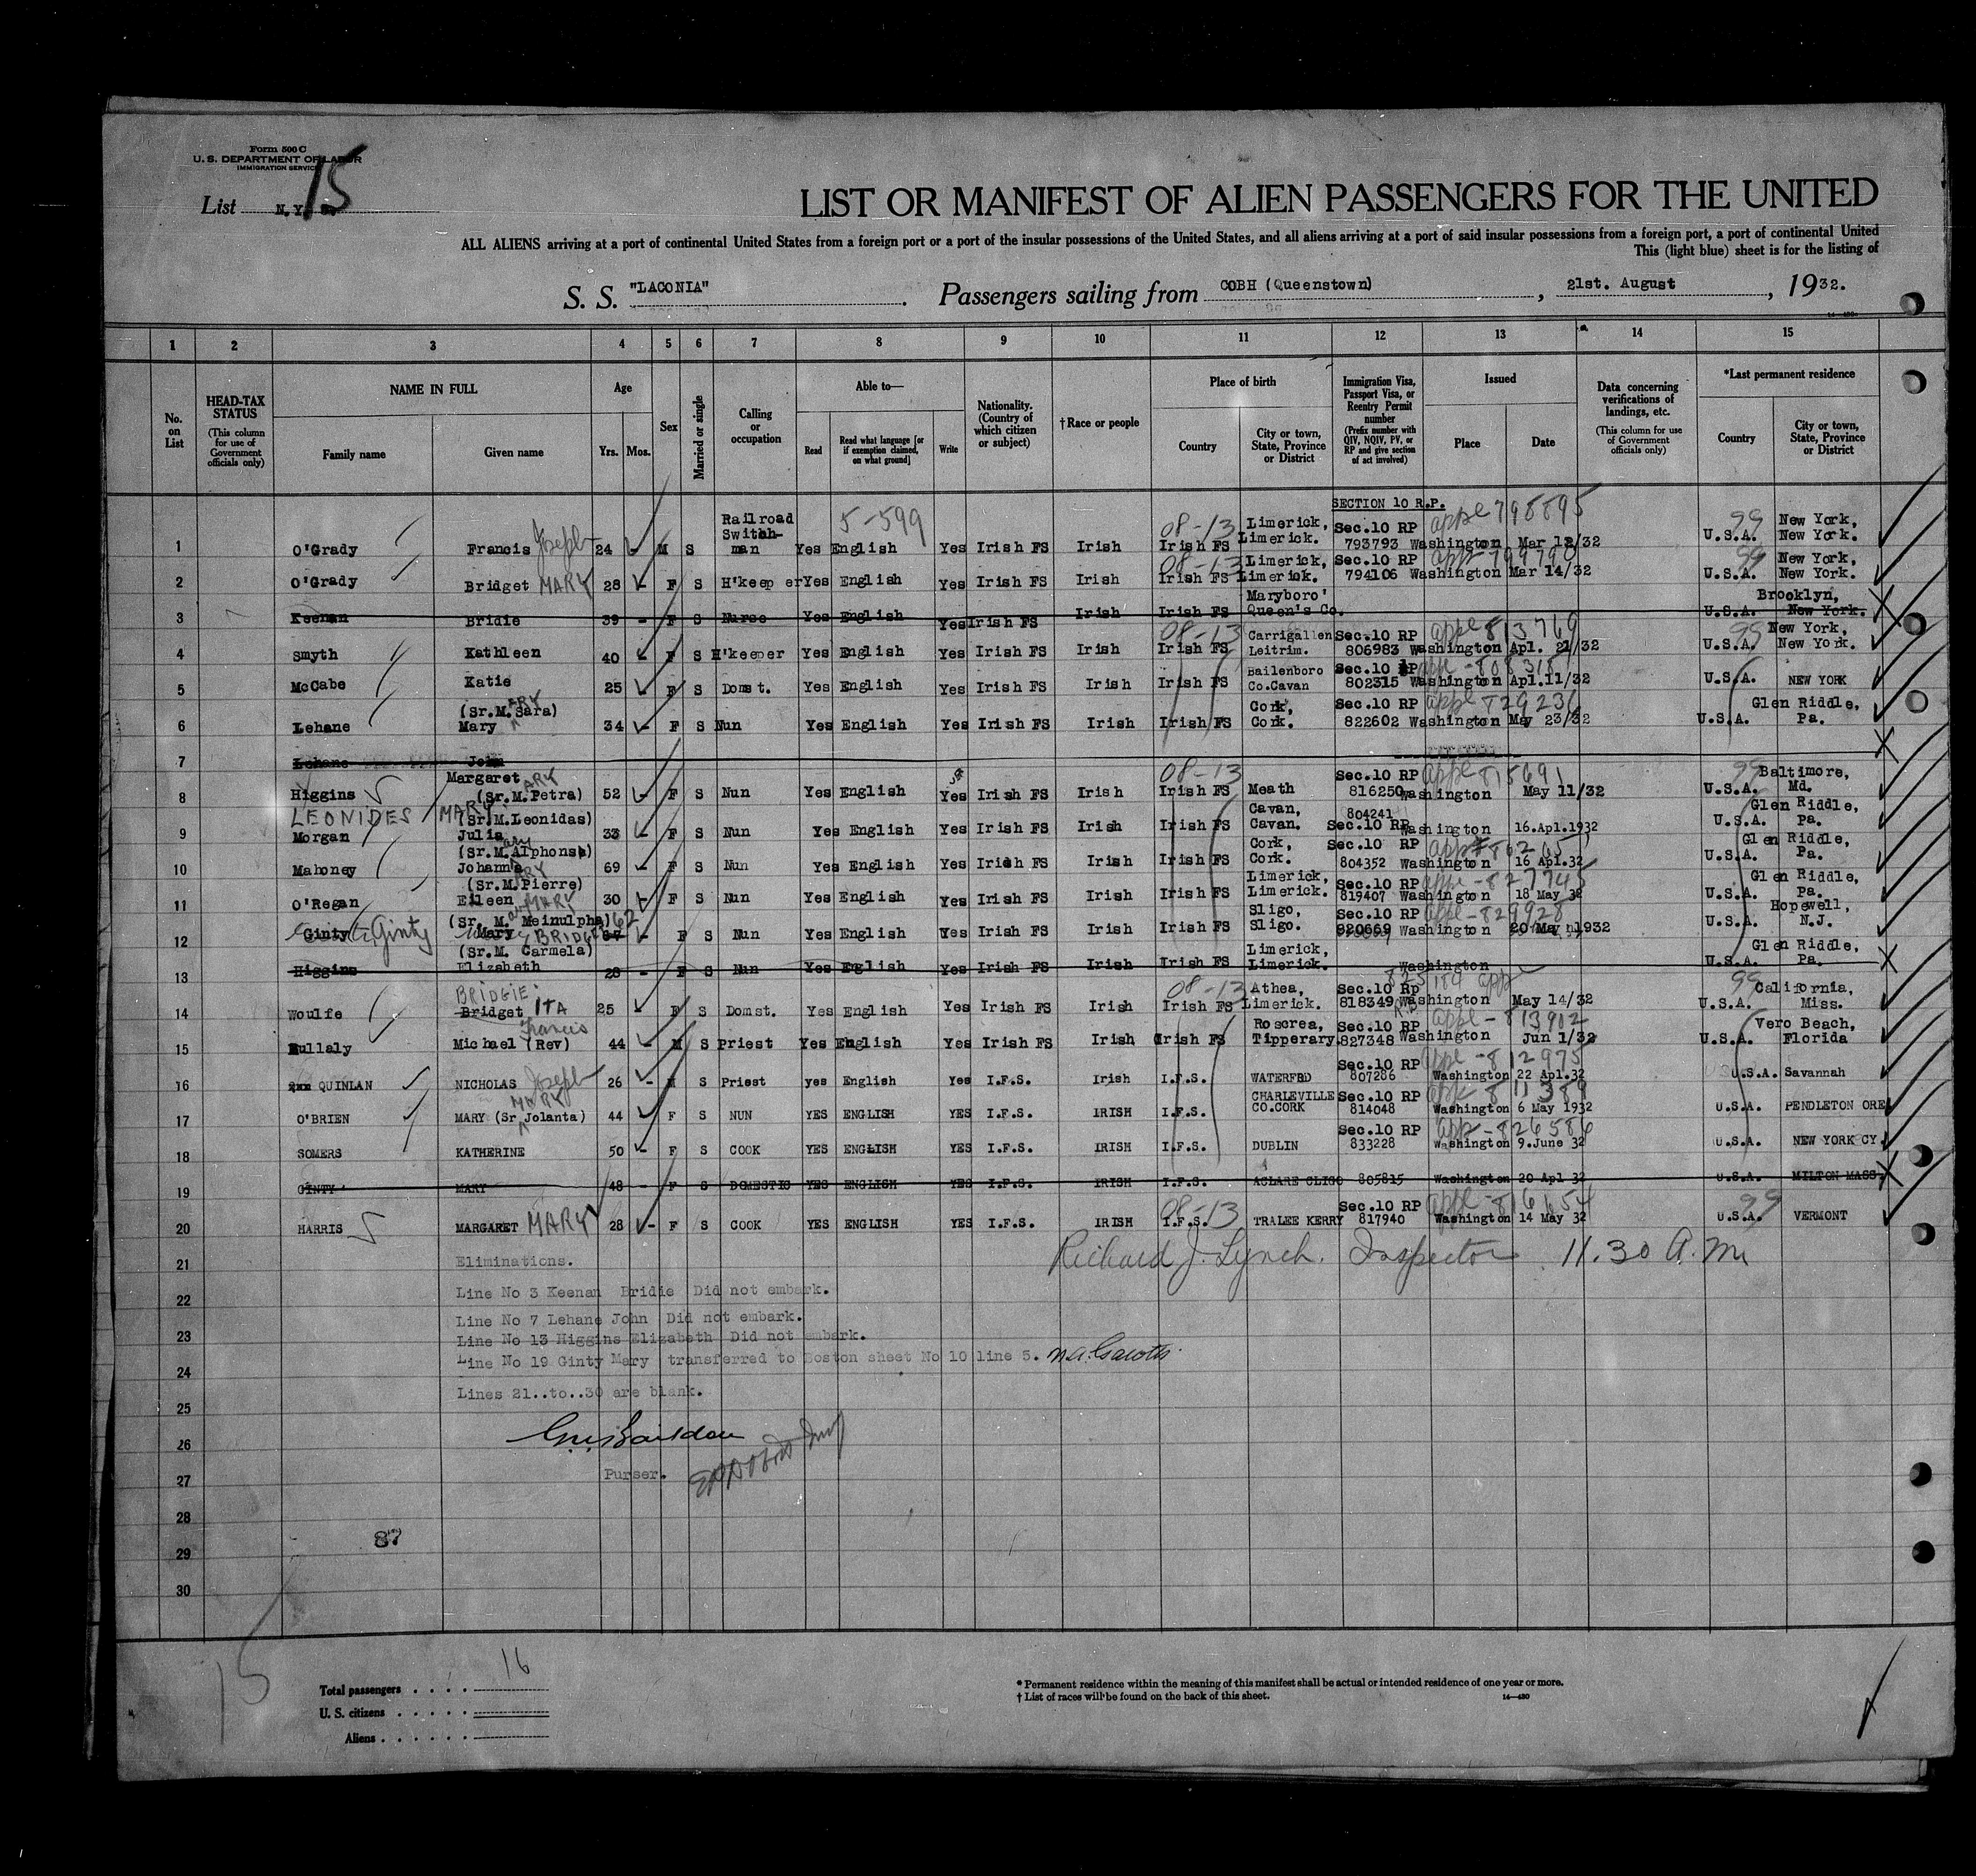 Form 500 C
U. S. DEPARTMENT OF LABOR
IMMIGRATION SERVICE
List N.Y. 15
LIST OR MANIFEST OF ALIEN PASSENGERS FOR THE UNITED
ALL ALIENS arriving at a port of continental United States from a foreign port or a port of the insular possessions of the United States, and all aliens arriving at a port of said insular possessions from a foreign port, a port of continental United
This (light blue) sheet is for the listing of
S. S. "LACONIA" . Passengers sailing from COBH (Queenstown) , 21st. August , 1932.
14—430
1 2 3 4 5 6 7 8 9 10 11 12 13 14 15
No. on List
HEAD-TAX STATUS (This column for use of Government officials only)
NAME IN FULL Family name Given name
Age Yrs. Mos.
Sex
Married or single
Calling or occupation
Able to— Read Read what language [or if exemption claimed, on what ground] Write
Nationality. (Country of which citizen or subject)
†Race or people
Place of birth Country City or town, State, Province or District
Immigration Visa, Passport Visa, or Reentry Permit number (Prefix number with QIV, NQIV, PV, or RP and give section of act involved)
Issued Place Date
Data concerning verifications of landings, etc. (This column for use of Government officials only)
*Last permanent residence Country City or town, State, Province or District
SECTION 10 R.P.
1 O'Grady Francis Joseph 24 - M S Railroad Switch-man Yes English 5-599 Yes Irish FS Irish 08-13 Irish FS Limerick, Limerick. Sec.10 RP 793793 Washington Mar 12/32 appl 798895 99 U.S.A. New York, New York.
2 O'Grady Bridget MARY 28 - F S H'keeper Yes English Yes Irish FS Irish 08-13 Irish FS Limerick, Limerick. Sec.10 RP 794106 Washington Mar 14/32 appl-799790 99 U.S.A. New York, New York.
3 Keenan Bridie 39 - F S Nurse Yes English Yes Irish FS Irish Irish FS Maryboro' Queen's Co. U.S.A. Brooklyn, New York.
4 Smyth Kathleen 40 - F S H'keeper Yes English Yes Irish FS Irish 08-13 Irish FS Carrigallen Leitrim. Sec.10 RP 806983 Washington Apl. 21/32 appl 813769 99 U.S.A. New York, New York.
5 McCabe Katie 25 - F S Domst. Yes English Yes Irish FS Irish Irish FS Bailenboro Co.Cavan Sec.10 RP 802315 Washington Apl.11/32 appl-808318 U.S.A. NEW YORK
6 Lehane (Sr.M.Sara) ARY Mary 34 - F S Nun Yes English Yes Irish FS Irish Irish FS Cork, Cork. Sec.10 RP 822602 Washington May 23/32 appl 829236 U.S.A. Glen Riddle, Pa.
7 Lehane John
8 Higgins Margaret (Sr.M.Petra) ARY 52 - F S Nun Yes English Yes Irish FS Irish 08-13 Irish FS Meath Sec.10 RP 816250 Washington May 11/32 appl 815691 99 U.S.A. Baltimore, Md.
9 LEONIDES MARY Morgan (Sr.M.Leonidas) Julia 33 - F S Nun Yes English Yes Irish FS Irish Irish FS Cavan, Cavan. 804241 Sec.10 RP Washington 16.Apl.1932 U.S.A. Glen Riddle, Pa.
10 Mahoney (Sr.M.Alphonsa) ary Johanna 69 - F S Nun Yes English Yes Irish FS Irish Irish FS Cork, Cork. Sec.10 RP 804352 Washington 16 Apl.32 U.S.A. Glen Riddle, Pa.
11 O'Regan (Sr.M.Pierre) ARY Eileen MARY 30 - F S Nun Yes English Yes Irish FS Irish Irish FS Limerick, Limerick. Sec.10 RP 819407 Washington 18 May 32 appl-827745 U.S.A. Glen Riddle, Pa.
12 Ginty Ginty (Sr. M. Meinulpha) Mary BRIDGET 62 - F S Nun Yes English Yes Irish FS Irish Irish FS Sligo, Sligo. Sec.10 RP 820669 Washington 20 May 1932 appl-829928 U.S.A. Hopewell, N.J.
13 Higgins (Sr.M. Carmela) Elizabeth 28 - F S Nun Yes English Yes Irish FS Irish Irish FS Limerick, Limerick. Washington U.S.A. Glen Riddle, Pa.
14 Woulfe BRIDGIE Bridget ITA 25 - F S Domst. Yes English Yes Irish FS Irish 08-13 Irish FS Athea, Limerick. Sec.10 Rp 818349 Washington May 14/32 825184 appl 99 U.S.A. California, Miss.
15 Mullaly Michael (Rev) Francis 44 - M S Priest Yes English Yes Irish FS Irish Irish FS Roscrea, Tipperary. Sec.10 RP 827348 Washington Jun 1/32 appl-813902 U.S.A. Vero Beach, Florida
16 QUINLAN NICHOLAS Joseph 26 - M S Priest yes English Yes I.F.S. Irish I.F.S. WATERFRD Sec.10 RP 807286 Washington 22 Apl.32 appl-812975 U.S.A. Savannah
17 O'BRIEN MARY (Sr Jolanta) MARY 44 F S NUN YES ENGLISH YES I.F.S. IRISH I.F.S. CHARLEVILLE CO.CORK Sec.10 RP 814048 Washington 6 May 1932 appl 811389 U.S.A. PENDLETON ORE
18 SOMERS KATHERINE 50 - F S COOK YES ENGLISH YES I.F.S. IRISH I.F.S. DUBLIN Sec.10 RP 833228 Washington 9.June 32 app-826586 U.S.A. NEW YORK CY
19 GINTY MARY 48 - F S DOMESTIC YES ENGLISH YES I.F.S. IRISH I.F.S. ACLARE SLIGO 805815 Washington 20 Apl 32 U.S.A. MILTON MASS.
20 HARRIS MARGARET MARY 28 - F S COOK YES ENGLISH YES I.F.S. IRISH 08-13 I.F.S. TRALEE KERRY Sec.10 RP 817940 Washington 14 May 32 appl-816654 99 U.S.A. VERMONT
21 Eliminations. Richard J. Lynch. Inspector 11.30 A.M.
22 Line No 3 Keenan Bridie Did not embark.
Line No 7 Lehane John Did not embark.
23 Line No 13 Higgins Elizabeth Did not embark.
Line No 19 Ginty Mary transferred to Boston sheet No 10 line 5.
24
Lines 21..to..30 are blank.
25
26
27 Purser.
28
87
29
30
15
Total passengers 16
U. S. citizens
Aliens
* Permanent residence within the meaning of this manifest shall be actual or intended residence of one year or more.
† List of races will be found on the back of this sheet.
14—430